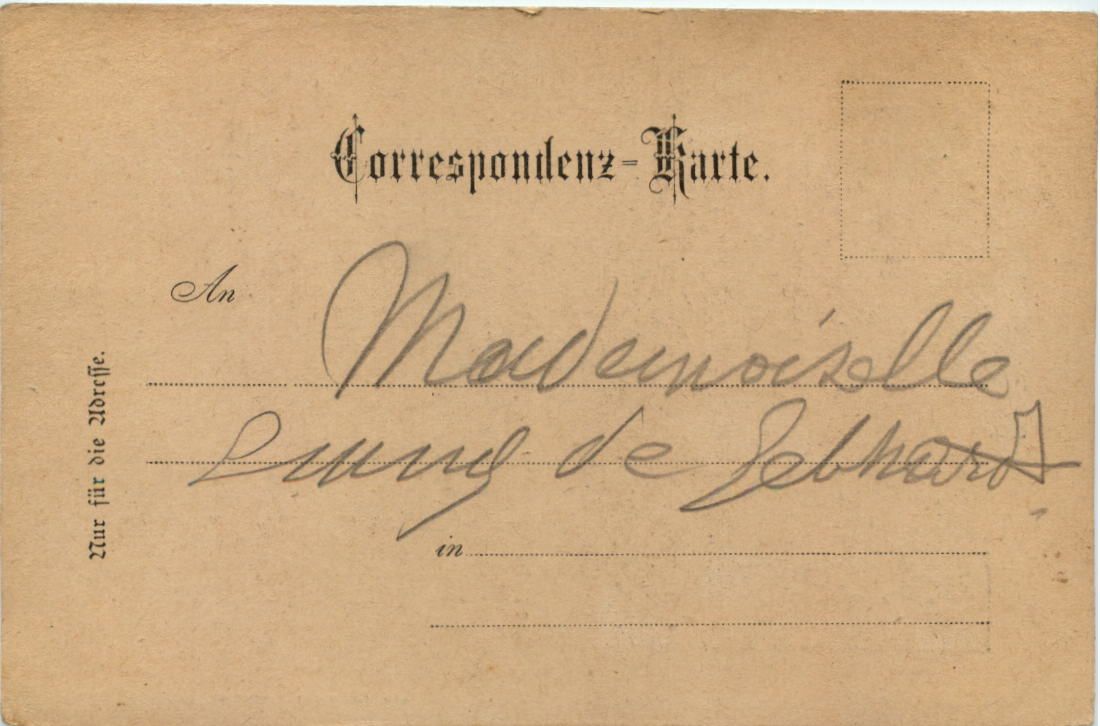 Correspondenz-Karte.
An
Mademoiselle
Emmy de Gebhard
in
Nur für die Adresse.